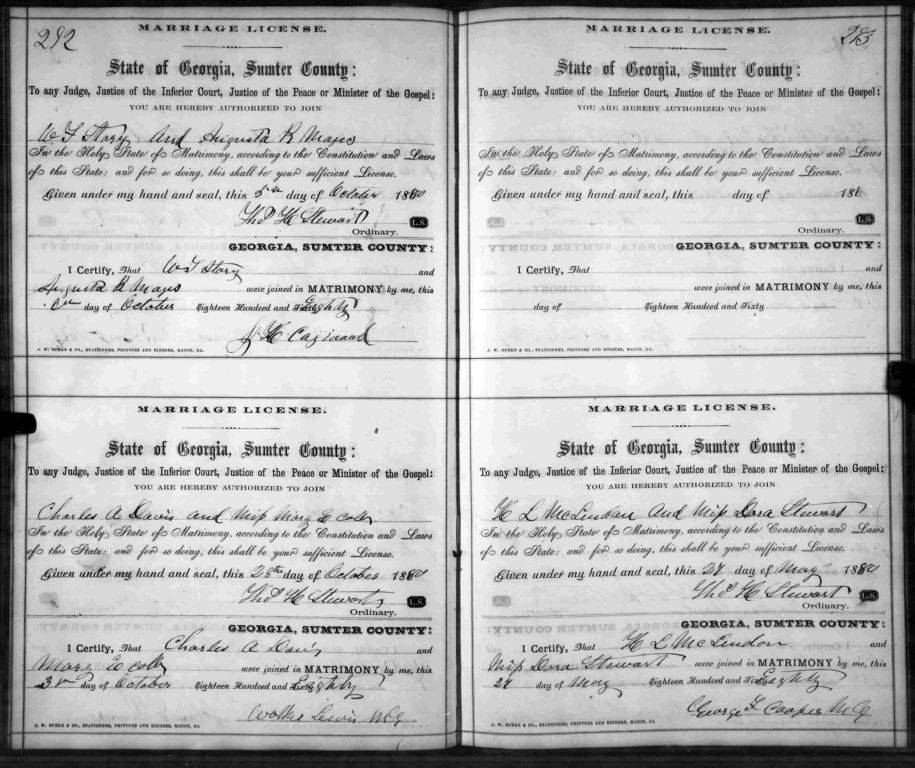 292
MARRIAGE LICENSE.
State of Georgia, Sumter County:
To any Judge, Justice of the Inferior Court, Justice of the Peace or Minister of the Gospel:
YOU ARE HEREBY AUTHORIZED TO JOIN
W F Story and Augusta R Mays
In the Holy State of Matrimony, according to the Constitution and Laws
of this State: and for so doing, this shall be your sufficient License.
Given under my hand and seal, this 5th day of October 1880
Thos H Stewart L.S.
Ordinary.
GEORGIA, SUMTER COUNTY:
I Certify, That W F Story and
Augusta R Mays were joined in MATRIMONY by me, this
day of October Eighteen Hundred and Sixty Eighty
H
J. W. BURKE & CO., STATIONERS, PRINTERS AND BINDERS, MACON, GA.
MARRIAGE LICENSE.
State of Georgia, Sumter County:
To any Judge, Justice of the Inferior Court, Justice of the Peace or Minister of the Gospel:
YOU ARE HEREBY AUTHORIZED TO JOIN
Charles A Davis and Miss Mary E
In the Holy State of Matrimony, according to the Constitution and Laws
of this State: and for so doing, this shall be your sufficient License.
Given under my hand and seal, this 28th day of October 1880
Thos H Stewart L.S.
Ordinary.
GEORGIA, SUMTER COUNTY:
I Certify, That Charles A Davis and
Mary E were joined in MATRIMONY by me, this
day of October Eighteen Hundred and Sixty Eighty
Lewis M G
J. W. BURKE & CO., STATIONERS, PRINTERS AND BINDERS, MACON, GA.
MARRIAGE LICENSE.
State of Georgia, Sumter County:
To any Judge, Justice of the Inferior Court, Justice of the Peace or Minister of the Gospel:
YOU ARE HEREBY AUTHORIZED TO JOIN
In the Holy State of Matrimony, according to the Constitution and Laws
of this State: and for so doing, this shall be your sufficient License.
Given under my hand and seal, this day of 186
L.S.
Ordinary.
GEORGIA, SUMTER COUNTY:
I Certify, That and
were joined in MATRIMONY by me, this
day of Eighteen Hundred and Sixty
J. W. BURKE & CO., STATIONERS, PRINTERS AND BINDERS, MACON, GA.
MARRIAGE LICENSE.
State of Georgia, Sumter County:
To any Judge, Justice of the Inferior Court, Justice of the Peace or Minister of the Gospel:
YOU ARE HEREBY AUTHORIZED TO JOIN
H L McLendon and Miss Dora Stewart
In the Holy State of Matrimony, according to the Constitution and Laws
of this State: and for so doing, this shall be your sufficient License.
Given under my hand and seal, this 27 day of May 1880
Thos H Stewart L.S.
Ordinary.
GEORGIA, SUMTER COUNTY:
I Certify, That H L McLendon and
Miss Dora Stewart were joined in MATRIMONY by me, this
27 day of May Eighteen Hundred and Sixty Eighty
George F Cooper M G
J. W. BURKE & CO., STATIONERS, PRINTERS AND BINDERS, MACON, GA